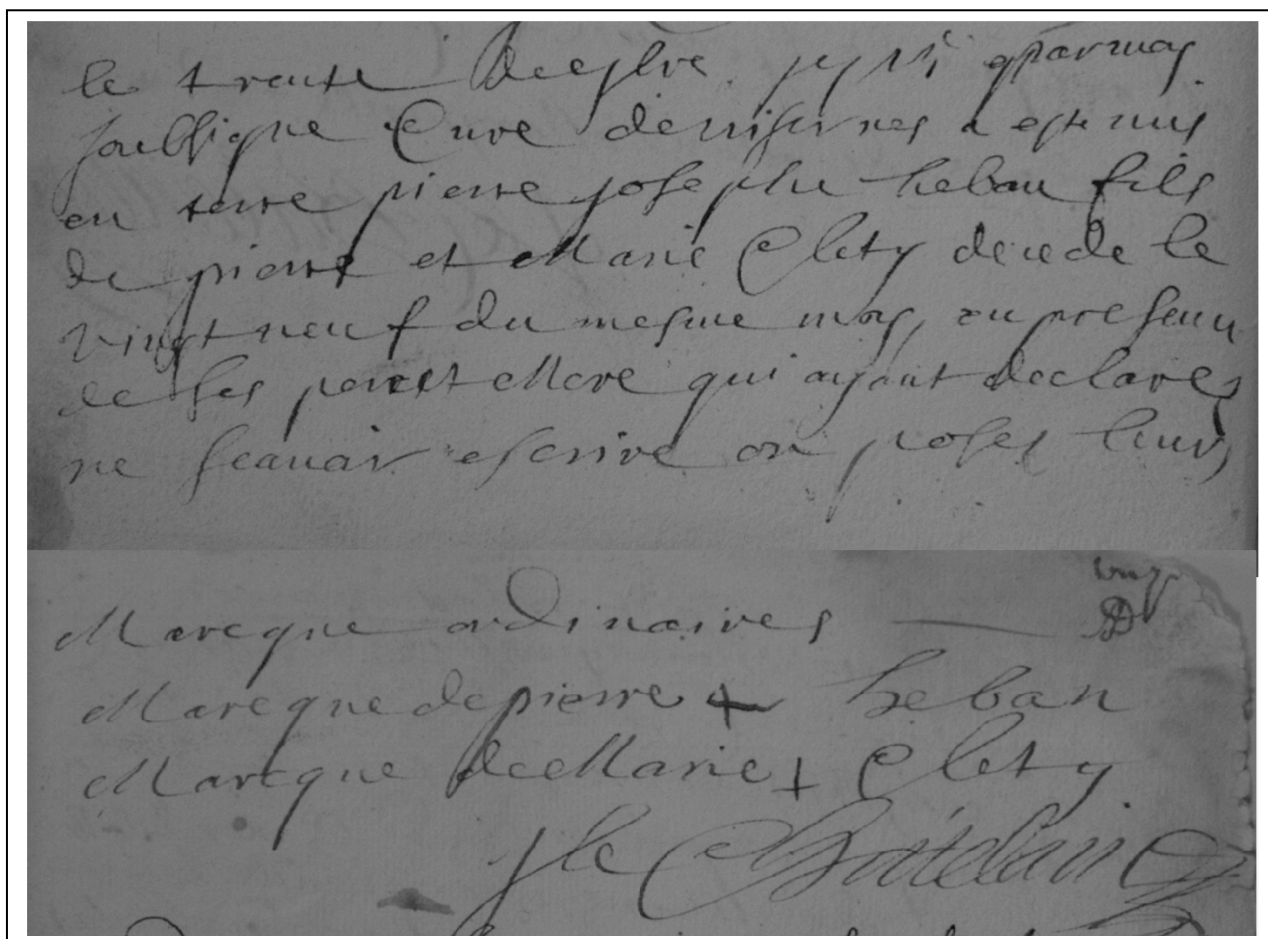 le trente decebre par moy
soubsigne Cure de wisernes a este mis
en terre pierre josephe heban fils
de pierre et Marie Clety decede le
vingt neuf du mesme mois, en presence
de ses pere et Mere qui ayant declarez
ne scauoir escrire on posez leurs
Marcque ordinaires
Marcque de pierre + heban
Marcque de Marie + Clety